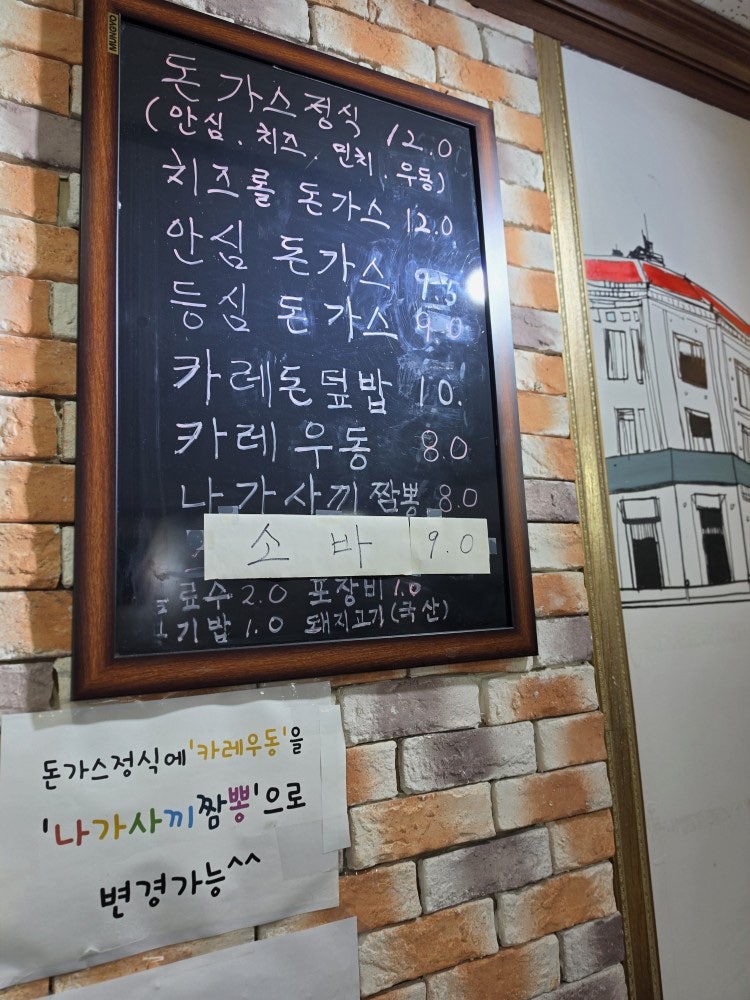 MUNGYO
돈가스정식 12.0
(안심. 치즈. 민치. 우동)
치즈롤 돈가스 12.0
안심 돈가스 9.5
등심 돈가스 9.0
카레돈덮밥 10.
카레 우동 8.0
나가사끼 짬뽕 8.0
소 바 9.0
료수 2.0 포장비 1.0
기밥 1.0 돼지고기(국산)
돈가스정식에 '카레우동'을
'나가사끼짬뽕'으로
변경가능^^